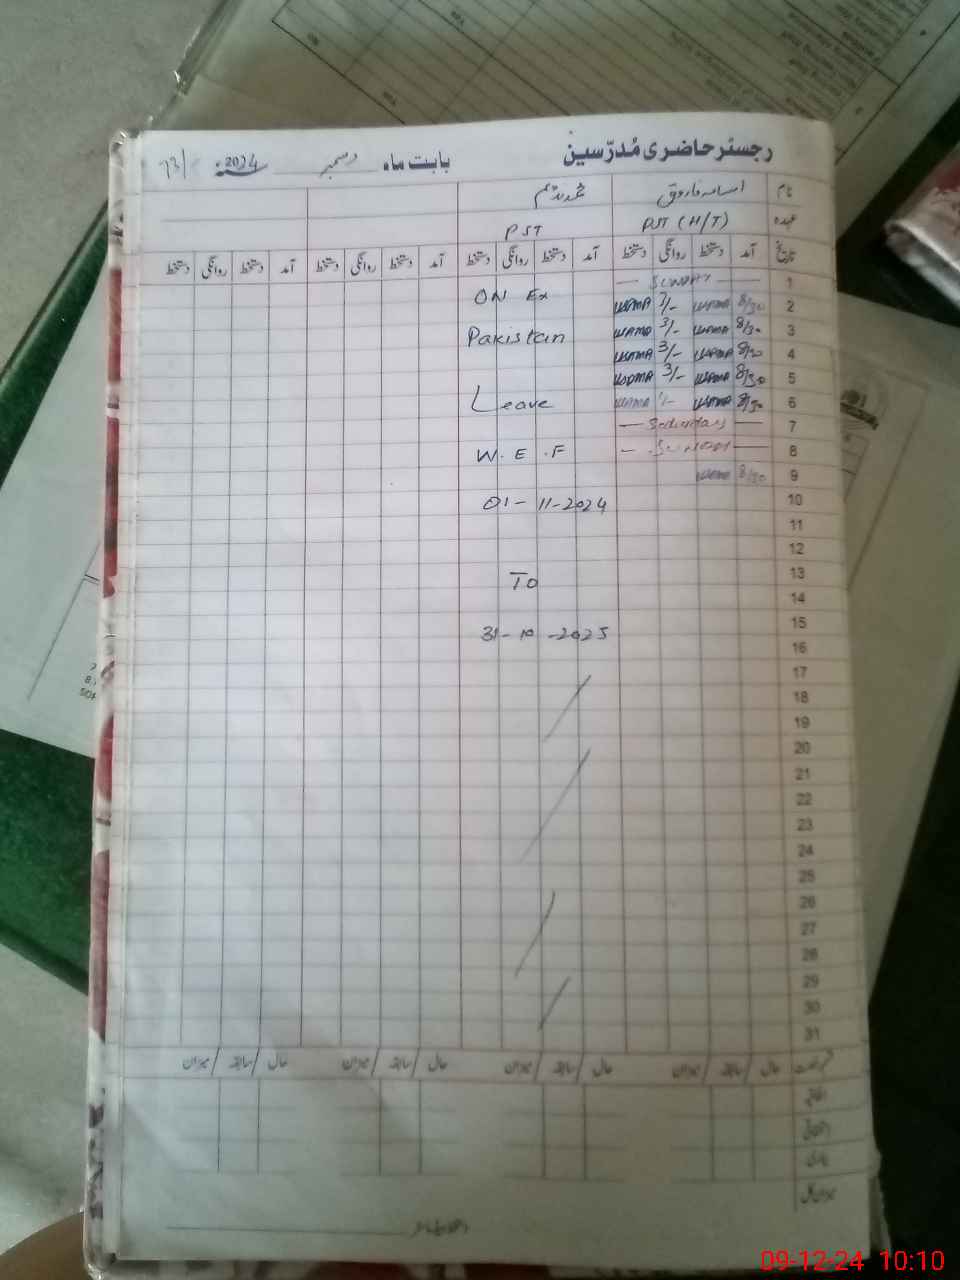 رجسٹر حاضری مُدرّسین بابت ماہ دسمبر سنہ 2024
نام اسامہ فاروق
عہدہ PST (H/T) PST
تاریخ آمد دستخط روانگی دستخط آمد دستخط روانگی دستخط آمد دستخط روانگی دستخط آمد دستخط روانگی دستخط
1 — SUNDAY —
2 8/30 USAMA 3/- USAMA ON Ex
3 8/30 USAMA 3/- USAMA Pakistan
4 8/30 USAMA 3/- USAMA
5 8/30 USAMA 3/- USAMA
6 8/30 USAMA USAMA Leave
7 — Saturday —
8 — SUNDAY — W.E.F
9 8/30 USAMA
10 01-11-2024
11
12
13 To
14
15 31-10-2025
16
17
18
19
20
21
22
23
24
25
26
27
28
29
30
31
حال / سابقہ / میزان حال / سابقہ / میزان حال / سابقہ / میزان حال / سابقہ / میزان
اتفاقی
بیماری
میزان کل
09-12-24 10:10